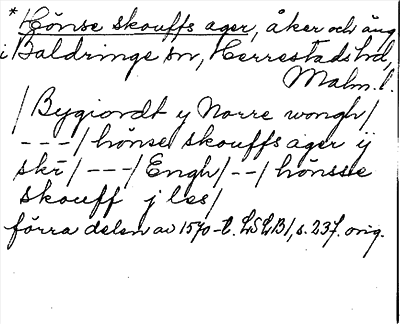 * Hönse skouffs ager, åker och äng
i Baldringe sn, Herrestads hd,
Malm. l.
/Bygiordt y Norre wongh/
---/hönse skouffs ager ij
skr/---/Engh/--/hönsse
skouff j les/
förra delen av 1570-t. LSLB1, s. 237. orig.